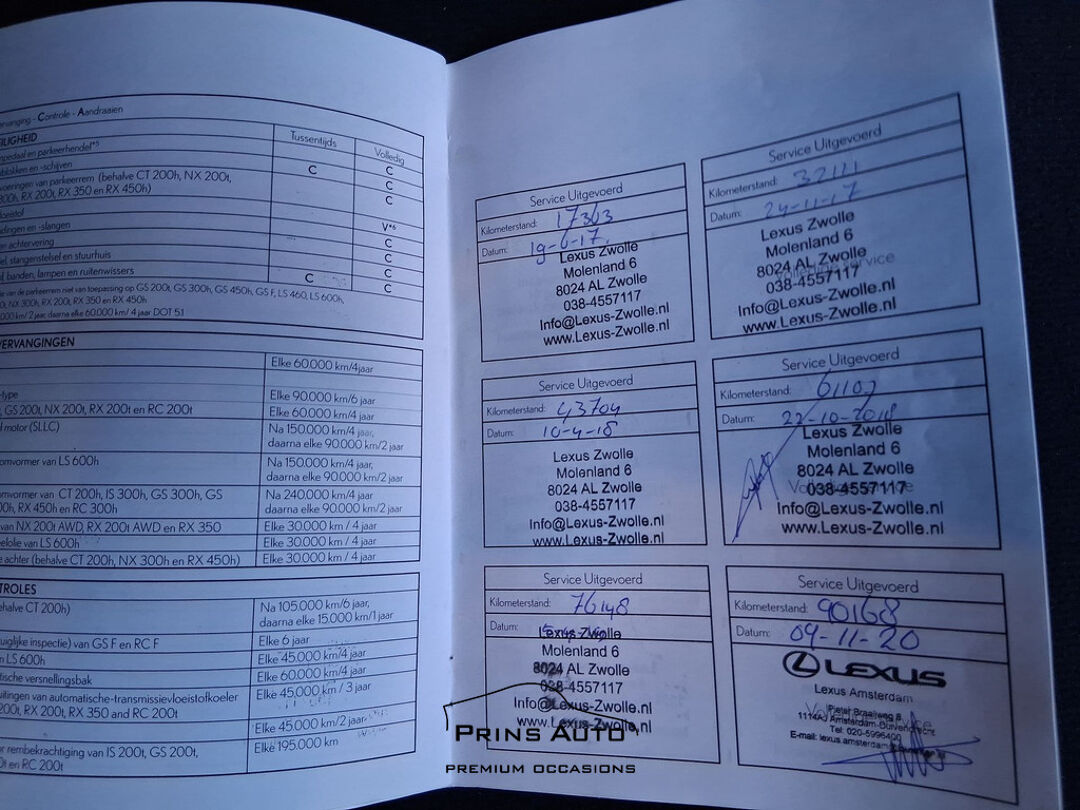 ervanging - Controle - Aandraaien
EILIGHEID
Tussentijds
Volledig
mpedaal en parkeerhendel*5
C
blokken en -schijven
C
C
voeringen van parkeerrem (behalve CT 200h, NX 200t,
300h, RX 200t, RX 350 en RX 450h)
C
loeistof
V*6
dingen en -slangen
C
en achtervering
C
el, stangenstelsel en stuurhuis
C
f, banden, lampen en ruitenwissers
C
C
e van de parkeerrem niet van toepassing op GS 200t, GS 300h, GS 450h, GS F, LS 460, LS 600h,
0t, NX 300h, RX 200t, RX 350 en RX 450h
000 km/ 2 jaar, daarna elke 60.000 km/ 4 jaar DOT 5.1
VERVANGINGEN
Elke 60.000 km/4 jaar
-type
Elke 90.000 km/6 jaar
, GS 200t, NX 200t, RX 200t en RC 200t
Elke 60.000 km/4 jaar
d motor (SLLC)
Na 150.000 km/4 jaar,
daarna elke 90.000 km/2 jaar
omvormer van LS 600h
Na 150.000 km/4 jaar,
daarna elke 90.000 km/2 jaar
omvormer van CT 200h, IS 300h, GS 300h, GS
0h, RX 450h en RC 300h
Na 240.000 km/4 jaar
daarna elke 90.000 km/2 jaar
van NX 200t AWD, RX 200t AWD en RX 350
Elke 30.000 km / 4 jaar
eelolie van LS 600h
Elke 30.000 km / 4 jaar
e achter (behalve CT 200h, NX 300h en RX 450h)
Elke 30.000 km / 4 jaar
TROLES
ehalve CT 200h)
Na 105.000 km/6 jaar,
daarna elke 15.000 km/1 jaar
uiglijke inspectie) van GS F en RC F
Elke 6 jaar
n LS 600h
Elke 45.000 km/4 jaar
tische versnellingsbak
Elke 60.000 km/4 jaar
uitingen van automatische-transmissievloeistofkoeler
200t, RX 200t, RX 350 and RC 200t
Elke 45.000 km / 3 jaar
Elke 45.000 km/2 jaar
or rembekrachtiging van IS 200t, GS 200t,
0t en RC 200t
Elke 195.000 km
Service Uitgevoerd
Kilometerstand: 17363
Datum: 19-6-17
Lexus Zwolle
Molenland 6
8024 AL Zwolle
038-4557117
Info@Lexus-Zwolle.nl
www.Lexus-Zwolle.nl
Service Uitgevoerd
Kilometerstand: 32111
Datum: 24-11-17
Lexus Zwolle
Molenland 6
8024 AL Zwolle
038-4557117
Info@Lexus-Zwolle.nl
www.Lexus-Zwolle.nl
Service Uitgevoerd
Kilometerstand: 43704
Datum: 10-4-18
Lexus Zwolle
Molenland 6
8024 AL Zwolle
038-4557117
Info@Lexus-Zwolle.nl
www.Lexus-Zwolle.nl
Service Uitgevoerd
Kilometerstand: 61102
Datum: 22-10-2018
Lexus Zwolle
Molenland 6
8024 AL Zwolle
038-4557117
Info@Lexus-Zwolle.nl
www.Lexus-Zwolle.nl
Service Uitgevoerd
Kilometerstand: 76148
Datum:
Lexus Zwolle
Molenland 6
8024 AL Zwolle
038-4557117
Info@Lexus-Zwolle.nl
www.Lexus-Zwolle.nl
Service Uitgevoerd
Kilometerstand: 90168
Datum: 09-11-20
LEXUS
Lexus Amsterdam
Pieter Braaiweg 6
1114AJ Amsterdam-Duivendrecht
Tel: 020-5996400
E-mail: lexus.amsterdam@
PRINS AUTO
PREMIUM OCCASIONS